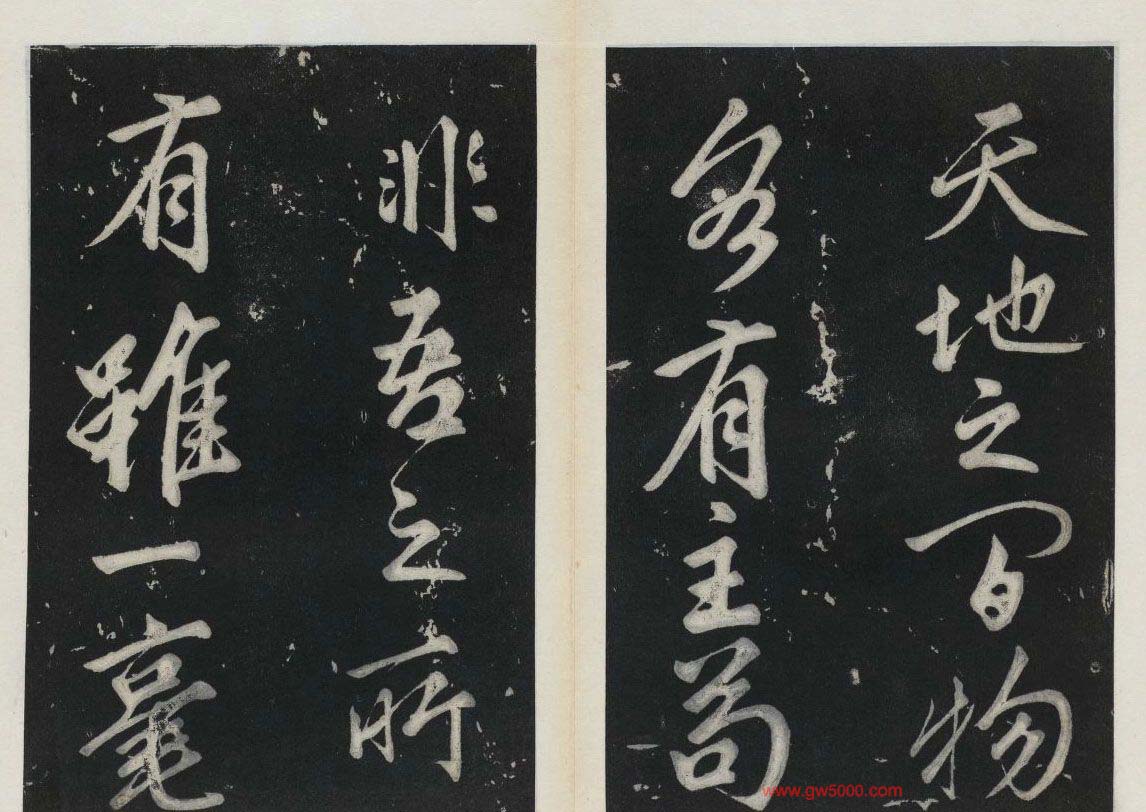 天地之間物
各有主苟
非吾之所
有雖一毫
www.gw5000.com